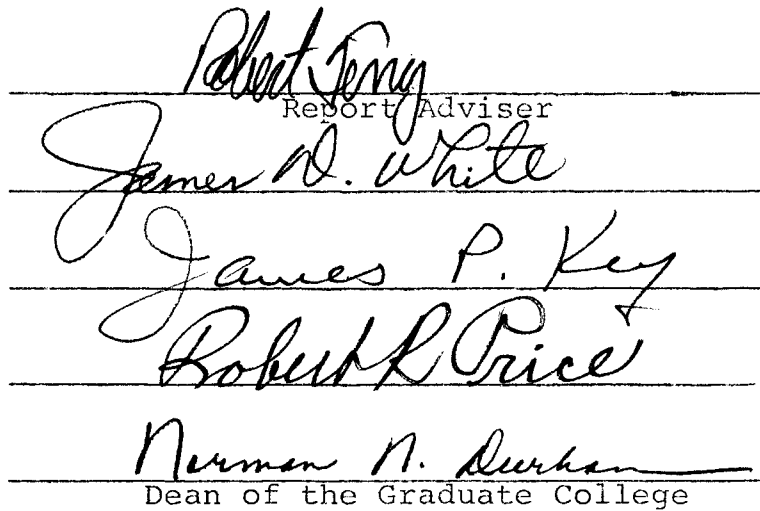 Robert Terry
Report Adviser
James D. White
James P. Key
Robert R Price
Norman N. Durham
Dean of the Graduate College